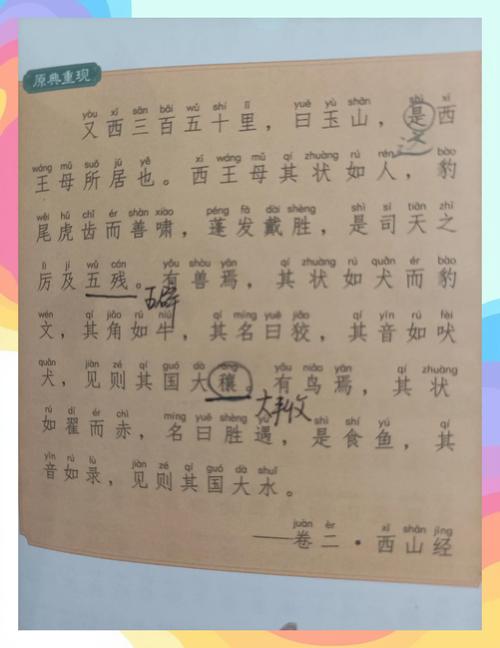 原典重现
yòu xī sān bǎi wǔ shí lǐ yuē yù shān shì xī
又西三百五十里，曰玉山，是西
这
wáng mǔ suǒ jū yě xī wáng mǔ qí zhuàng rú rén bào
王母所居也。西王母其状如人，豹
wěi hǔ chǐ ér shàn xiào péng fà dài shèng shì sī tiān zhī
尾虎齿而善啸，蓬发戴胜，是司天之
lì jí wǔ cán yǒu shòu yān qí zhuàng rú quǎn ér bào
厉及五残。有兽焉，其状如犬而豹
wén qí jiǎo rú niú qí míng yuē jiǎo qí yīn rú fèi
文，其角如牛，其名曰狡，其音如吠
quǎn jiàn zé qí guó dà ráng yǒu niǎo yān qí zhuàng
犬，见则其国大穰。有鸟焉，其状
大丰收
rú dí ér chì míng yuē shèng yù shì shí yú qí
如翟而赤，名曰胜遇，是食鱼，其
yīn rú lù jiàn zé qí guó dà shuǐ
音如录，见则其国大水。
juàn èr xī shān jīng
——卷二·西山经